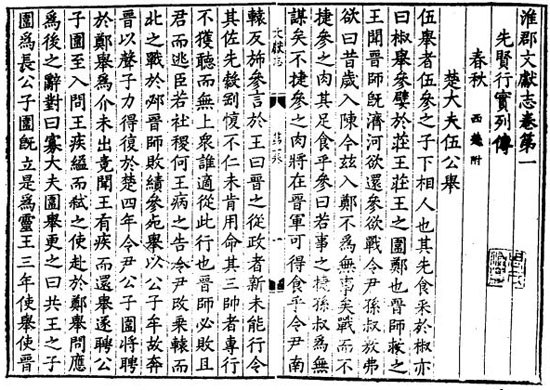 淮郡文獻志卷第一
先賢行實列傳
春秋 西楚附
楚大夫伍公舉
伍舉者伍參之子下相人也其先食采於椒亦
曰椒舉參嬖於莊王莊王之圍鄭也晉師救之
王聞晉師旣濟河欲還參欲戰令尹孫叔敖弗
欲曰昔歲入陳今茲入鄭不爲無事矣戰而不
捷參之肉其足食乎參曰若事之捷孫叔爲無
謀矣不捷參之肉將在晉軍可得食乎令尹南
轅反斾參言於王曰晉之從政者新未能行令
其佐先縠剛愎不仁未肯用命其三帥者專行
不獲聽而無上衆誰適從此行也晉師必敗且
君而逃臣若社稷何王病之告令尹改乘轅而
北之戰於邲晉師敗績參死舉以公子牟故奔
晉以聲子力得復於楚四年令尹公子圍將聘
於鄭舉爲介未出竟聞王有疾而還舉遂聘公
子圍至入問王疾縊而弒之使赴於鄭舉問應
爲後之辭對曰寡大夫圍舉更之曰共王之子
圍爲長公子圍旣立是爲靈王三年使舉使晉